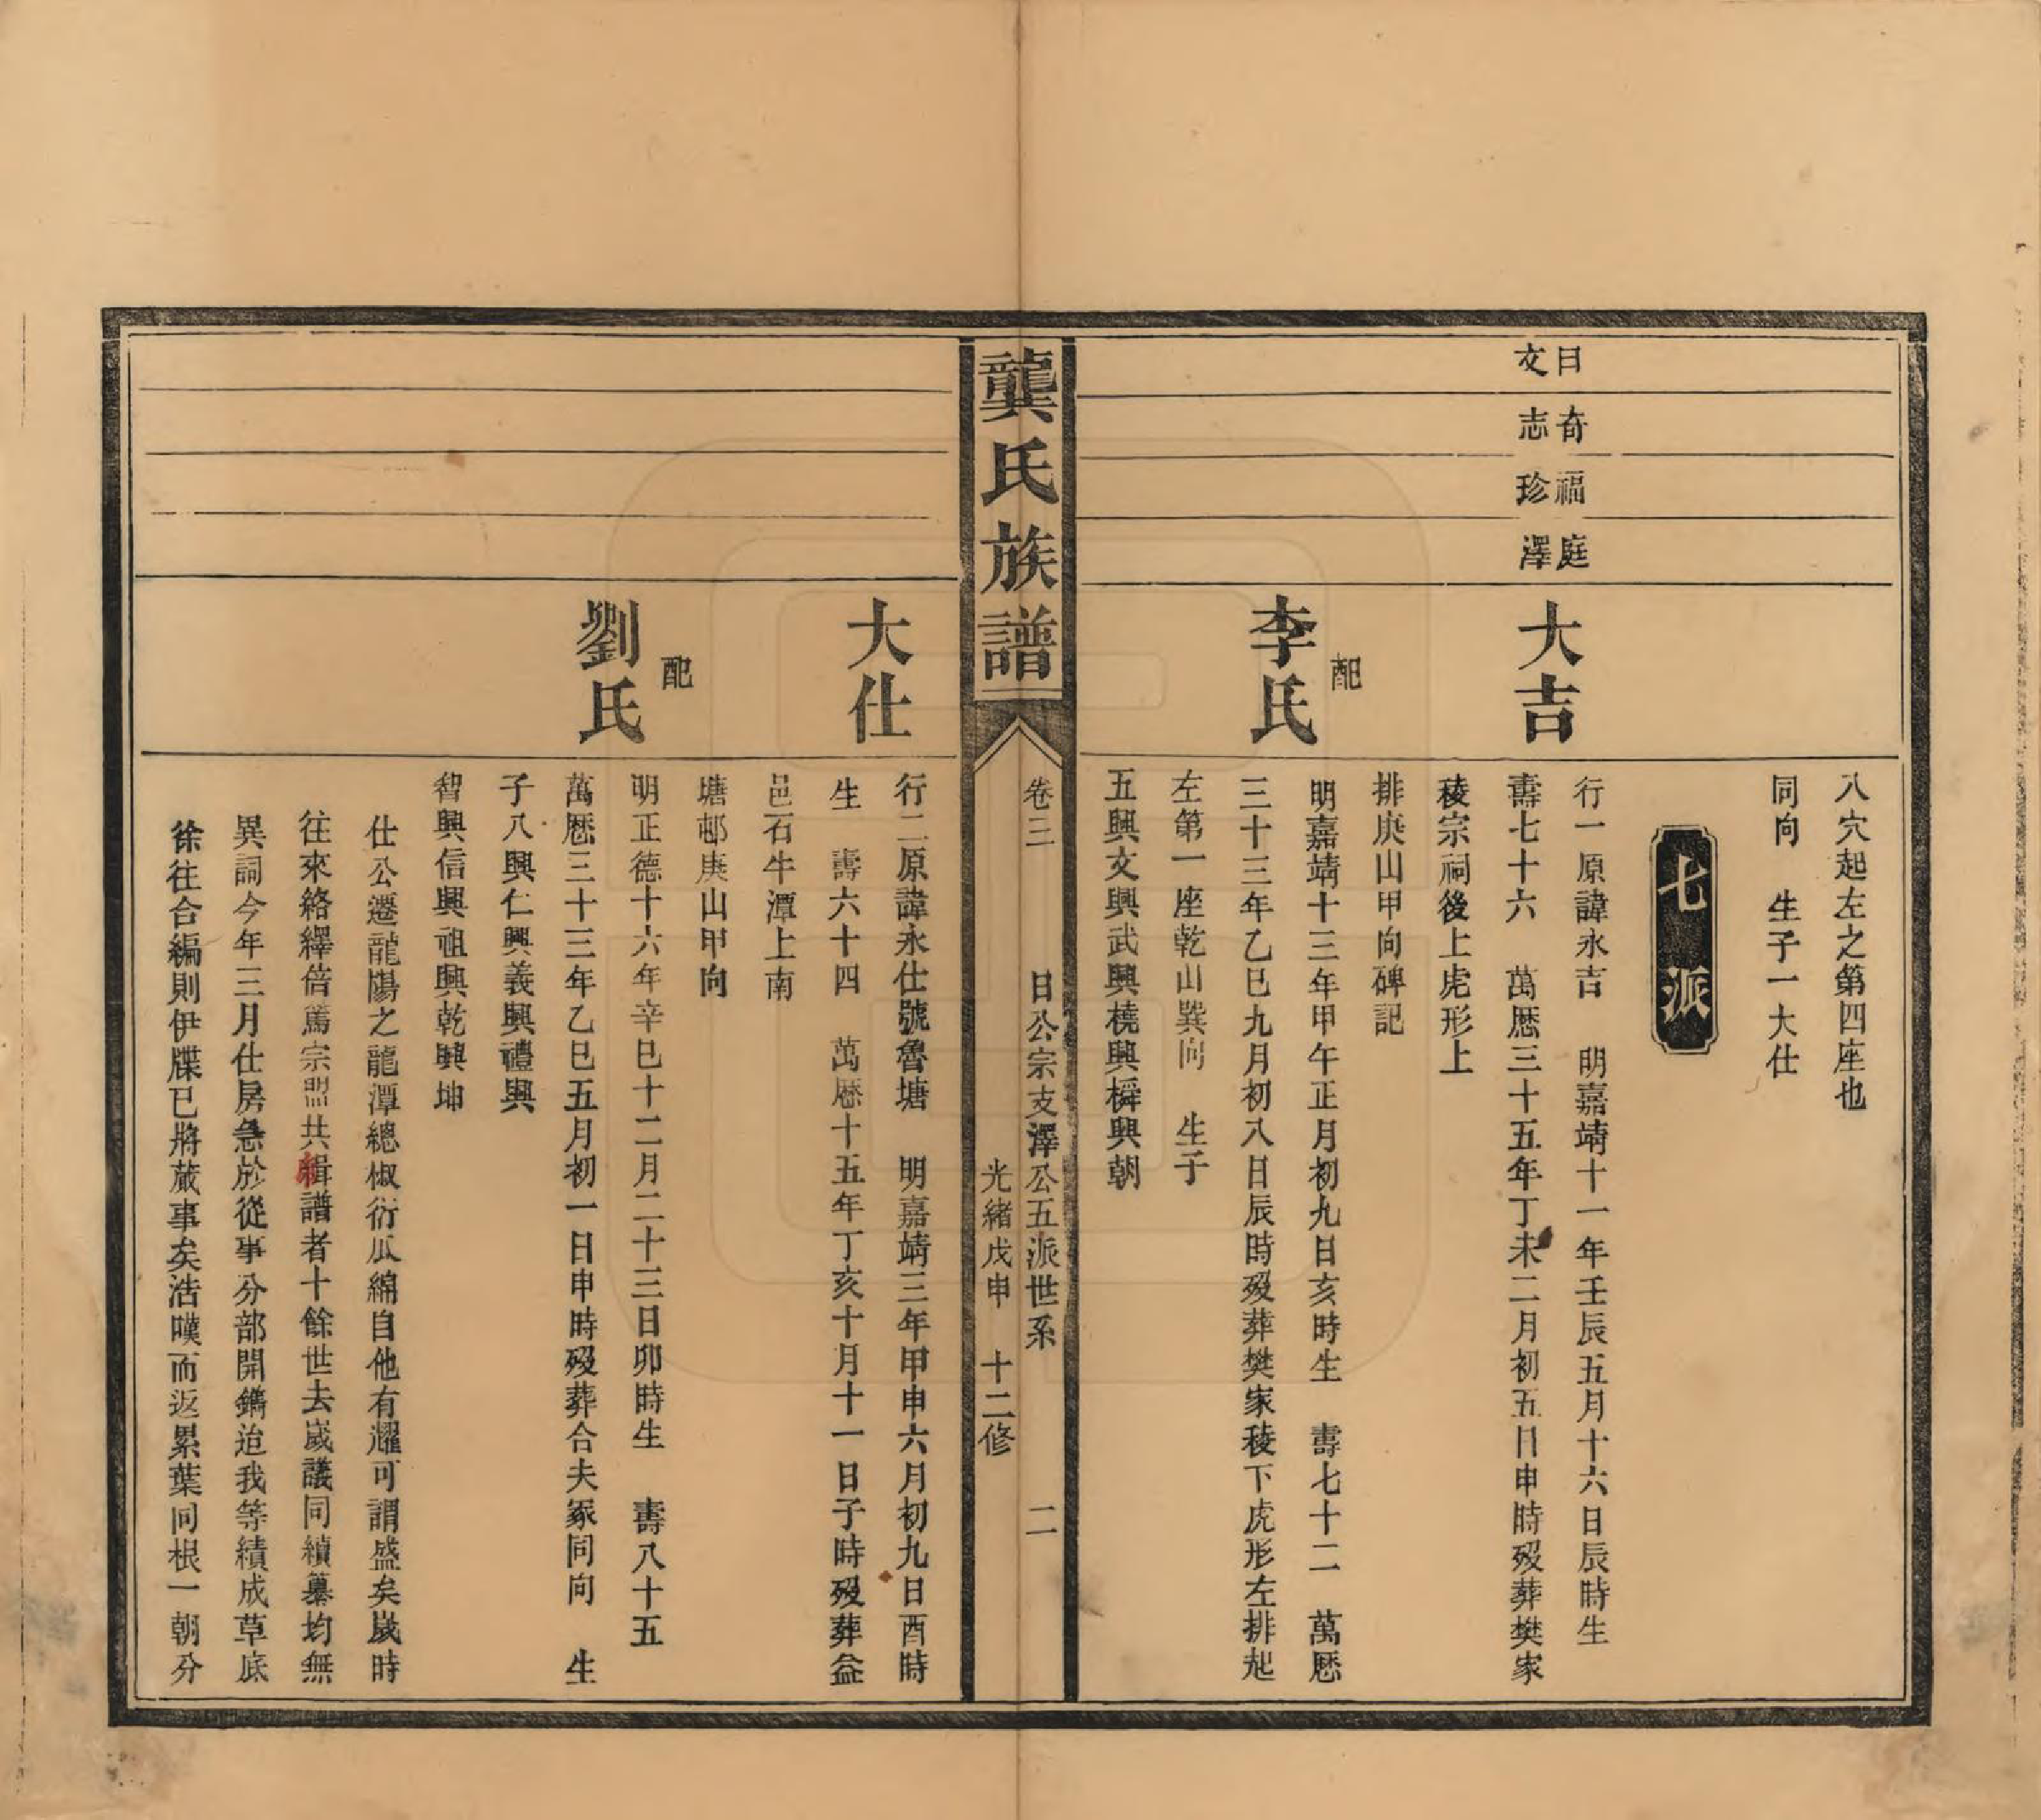 八穴起左之第四座也
同向　生子一大仕
七派
曰奇福庭
文志珍澤
大吉
行一原諱永吉　明嘉靖十一年壬辰五月十六日辰時生
壽七十六　萬厯三十五年丁未二月初五日申時殁葬樊家
稜宗祠後上虎形上
排庚山甲向碑記
配
李氏
明嘉靖十三年甲午正月初九日亥時生　壽七十二　萬厯
三十三年乙巳九月初八日辰時殁葬樊家稜下虎形左排起
左第一座乾山巽向　生子
五興文興武興橈興橓興朝
龔氏族譜
卷三　曰公宗支澤公五派世系　二
光緒戊申　十二修
大仕
行二原諱永仕號魯塘　明嘉靖三年甲申六月初九日酉時
生　壽六十四　萬厯十五年丁亥十月十一日子時殁葬益
邑石牛潭上南
塘邨庚山甲向
配
劉氏
明正德十六年辛巳十二月二十三日卯時生　壽八十五
萬厯三十三年乙巳五月初一日申時殁葬合夫冢同向　生
子八興仁興義興禮興
智興信興祖興乾興坤
仕公遷龍陽之龍潭總椒衍瓜綿自他有耀可謂盛矣嵗時
往來絡繹倍篤宗盟共輯譜者十餘世去嵗議同續纂均無
異詞今年三月仕房急於從事分部開鐫迨我等績成草底
徐往合編則伊牒已將蕆事矣浩嘆而返累葉同根一朝分